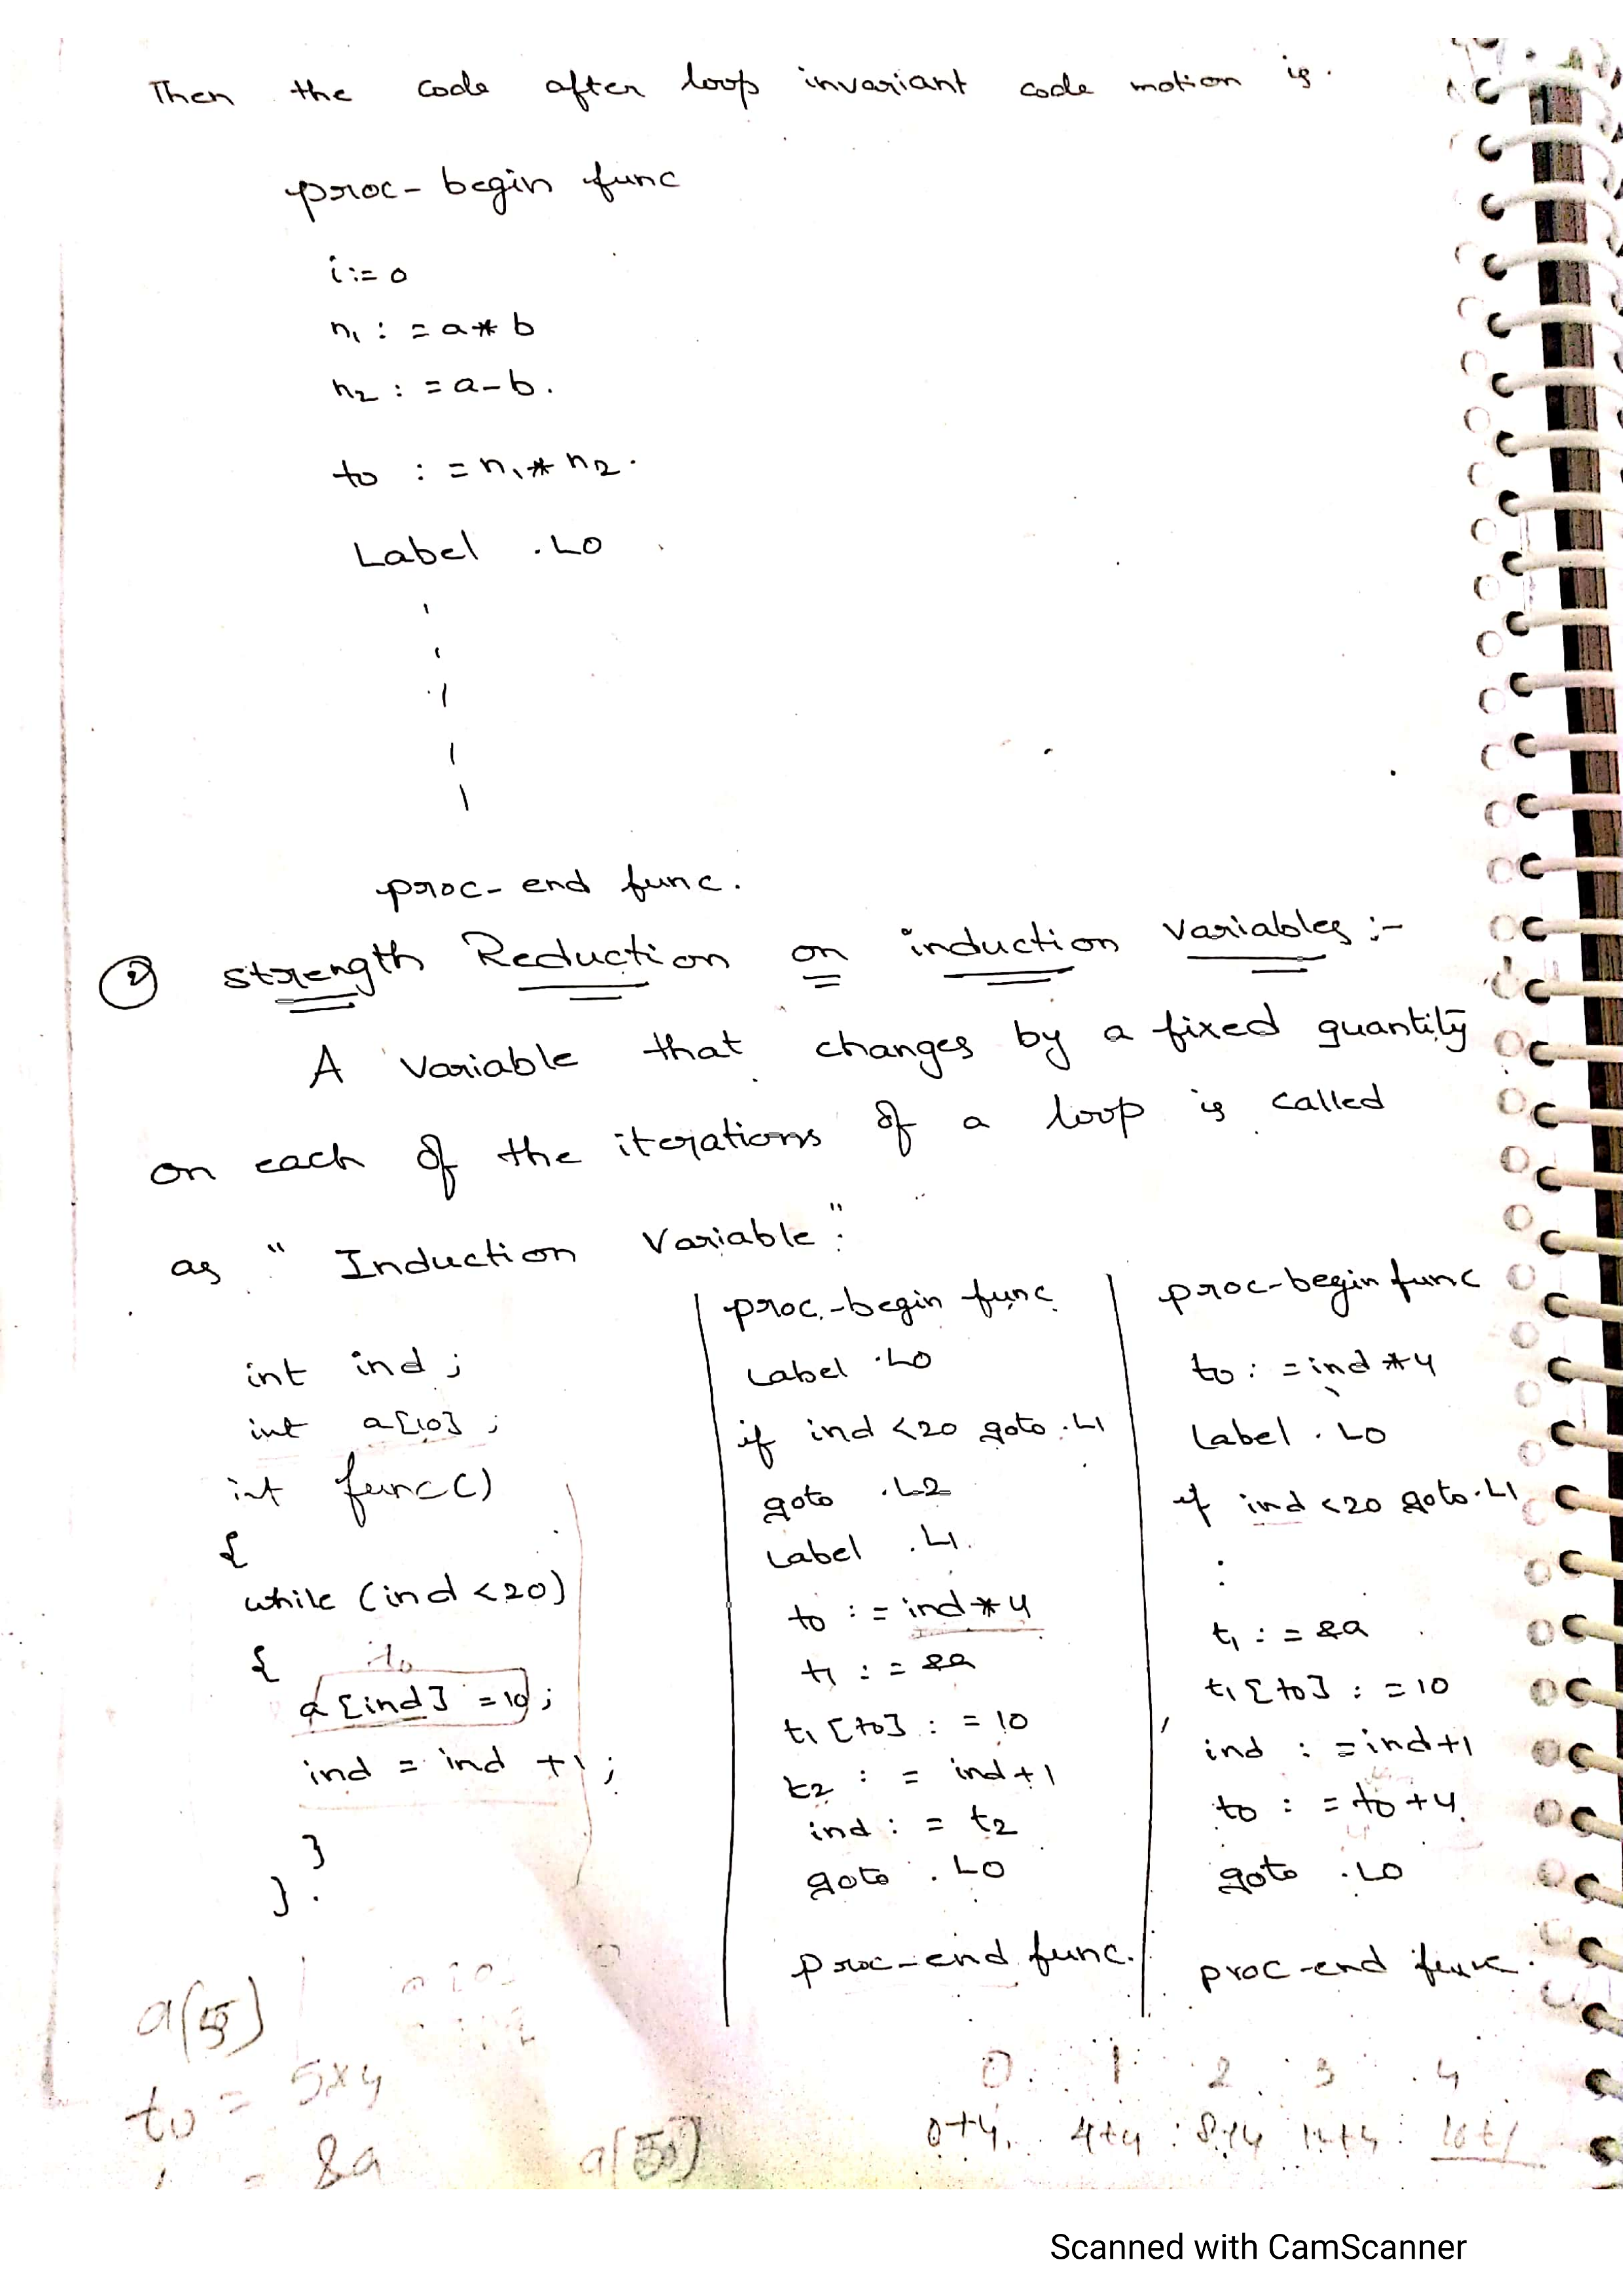 Then the code after loop invariant code motion is.
proc-begin func
i := 0
n1 := a * b
n2 := a - b.
to := n1 * n2.
Label .L0
proc-end func.
② Strength Reduction on induction variables :-
A Variable that changes by a fixed quantity
on each of the iterations of a loop is called
as " Induction Variable".
int ind ;
int a[10] ;
int func()
{
while (ind <20)
{
to
a[ind] = 10 ;
ind = ind +1 ;
}
}.
proc-begin func
Label .L0
if ind <20 goto .L1
goto .L2
Label .L1.
to := ind * 4
t1 := &a
t1 [to] := 10
t2 := ind+1
ind := t2
goto .L0
proc-end func.
proc-begin func
to := ind * 4
Label .L0
if ind <20 goto .L1
:
t1 := &a
t1 [to] := 10
ind := ind+1
to := to +4.
goto .L0
proc-end func.
to = 5x4
= &a
0 1 2 3 4
0+4, 4+4
Scanned with CamScanner